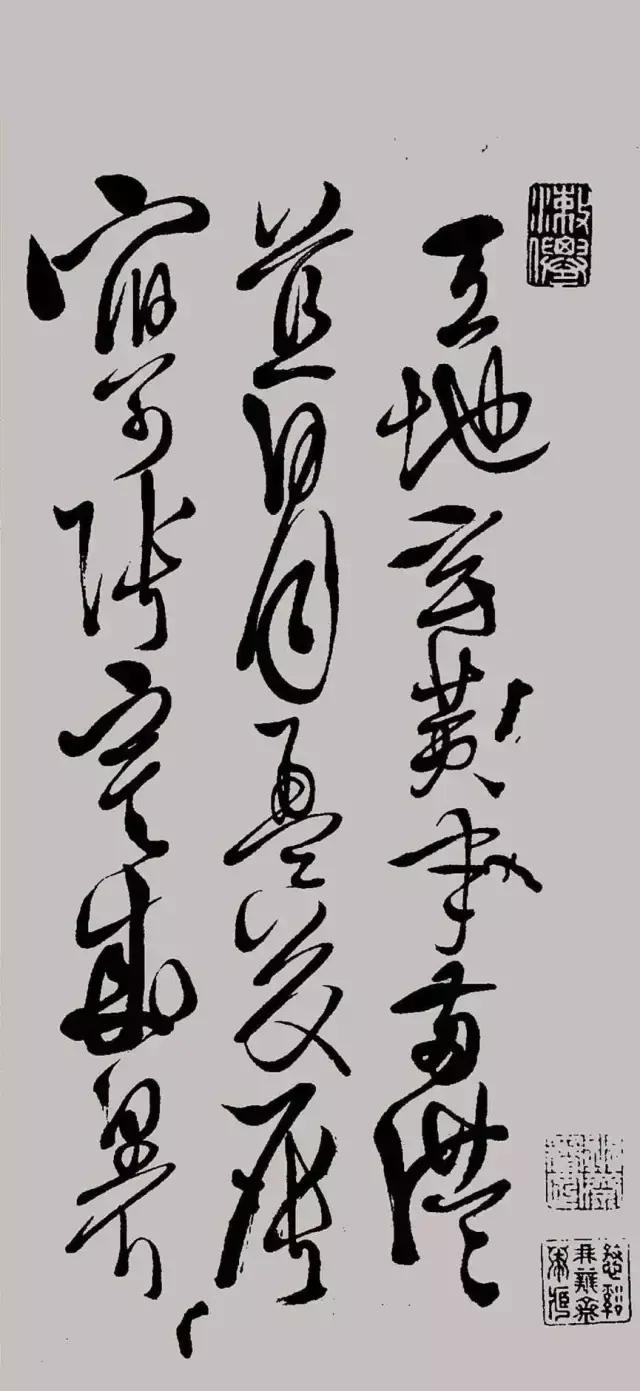 天地玄黄宇宙洪
荒日月盈昃辰
宿列張寒來暑